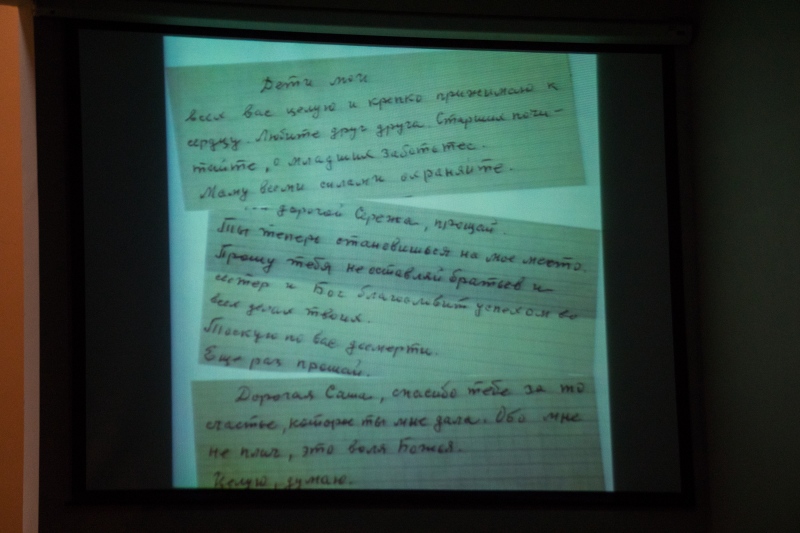 Дети мои
всех вас целую и крепко прижимаю к
сердцу. Любите друг друга. Старших почи-
тайте, о младших заботтес.
Маму всеми силами охраняйте.
дорогой Сережа, прощай.
Ты теперь становишься на мое место.
Прошу тебя не оставляй братьев и
сестер и Бог благословит успехом во
всех делах твоих.
Тоскую по вас досмерти.
Еще раз прощай.
Дорогая Саша, спасибо тебе за то
счастье, которе ты мне дала. Обо мне
не плач, это воля Божья.
Целую, думаю.